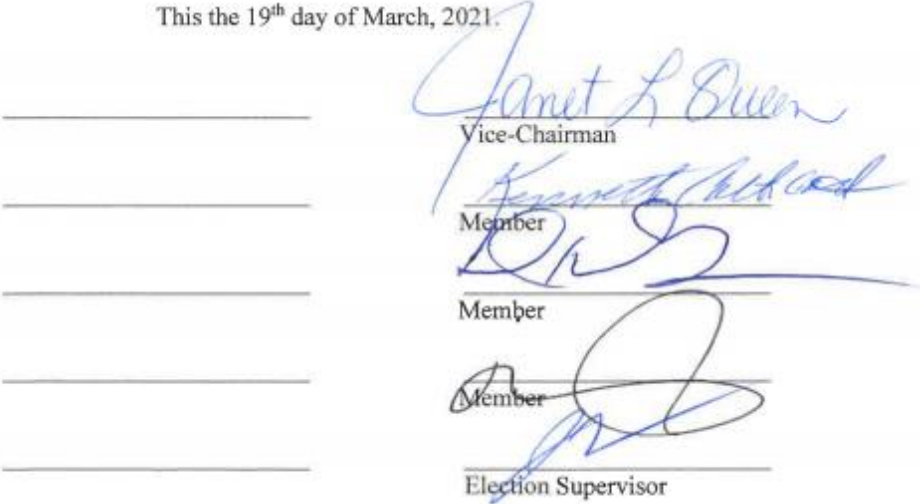 This the 19th day of March, 2021.
Janet L Queen
Vice-Chairman
Kenneth
Member
Member
Member
Election Supervisor